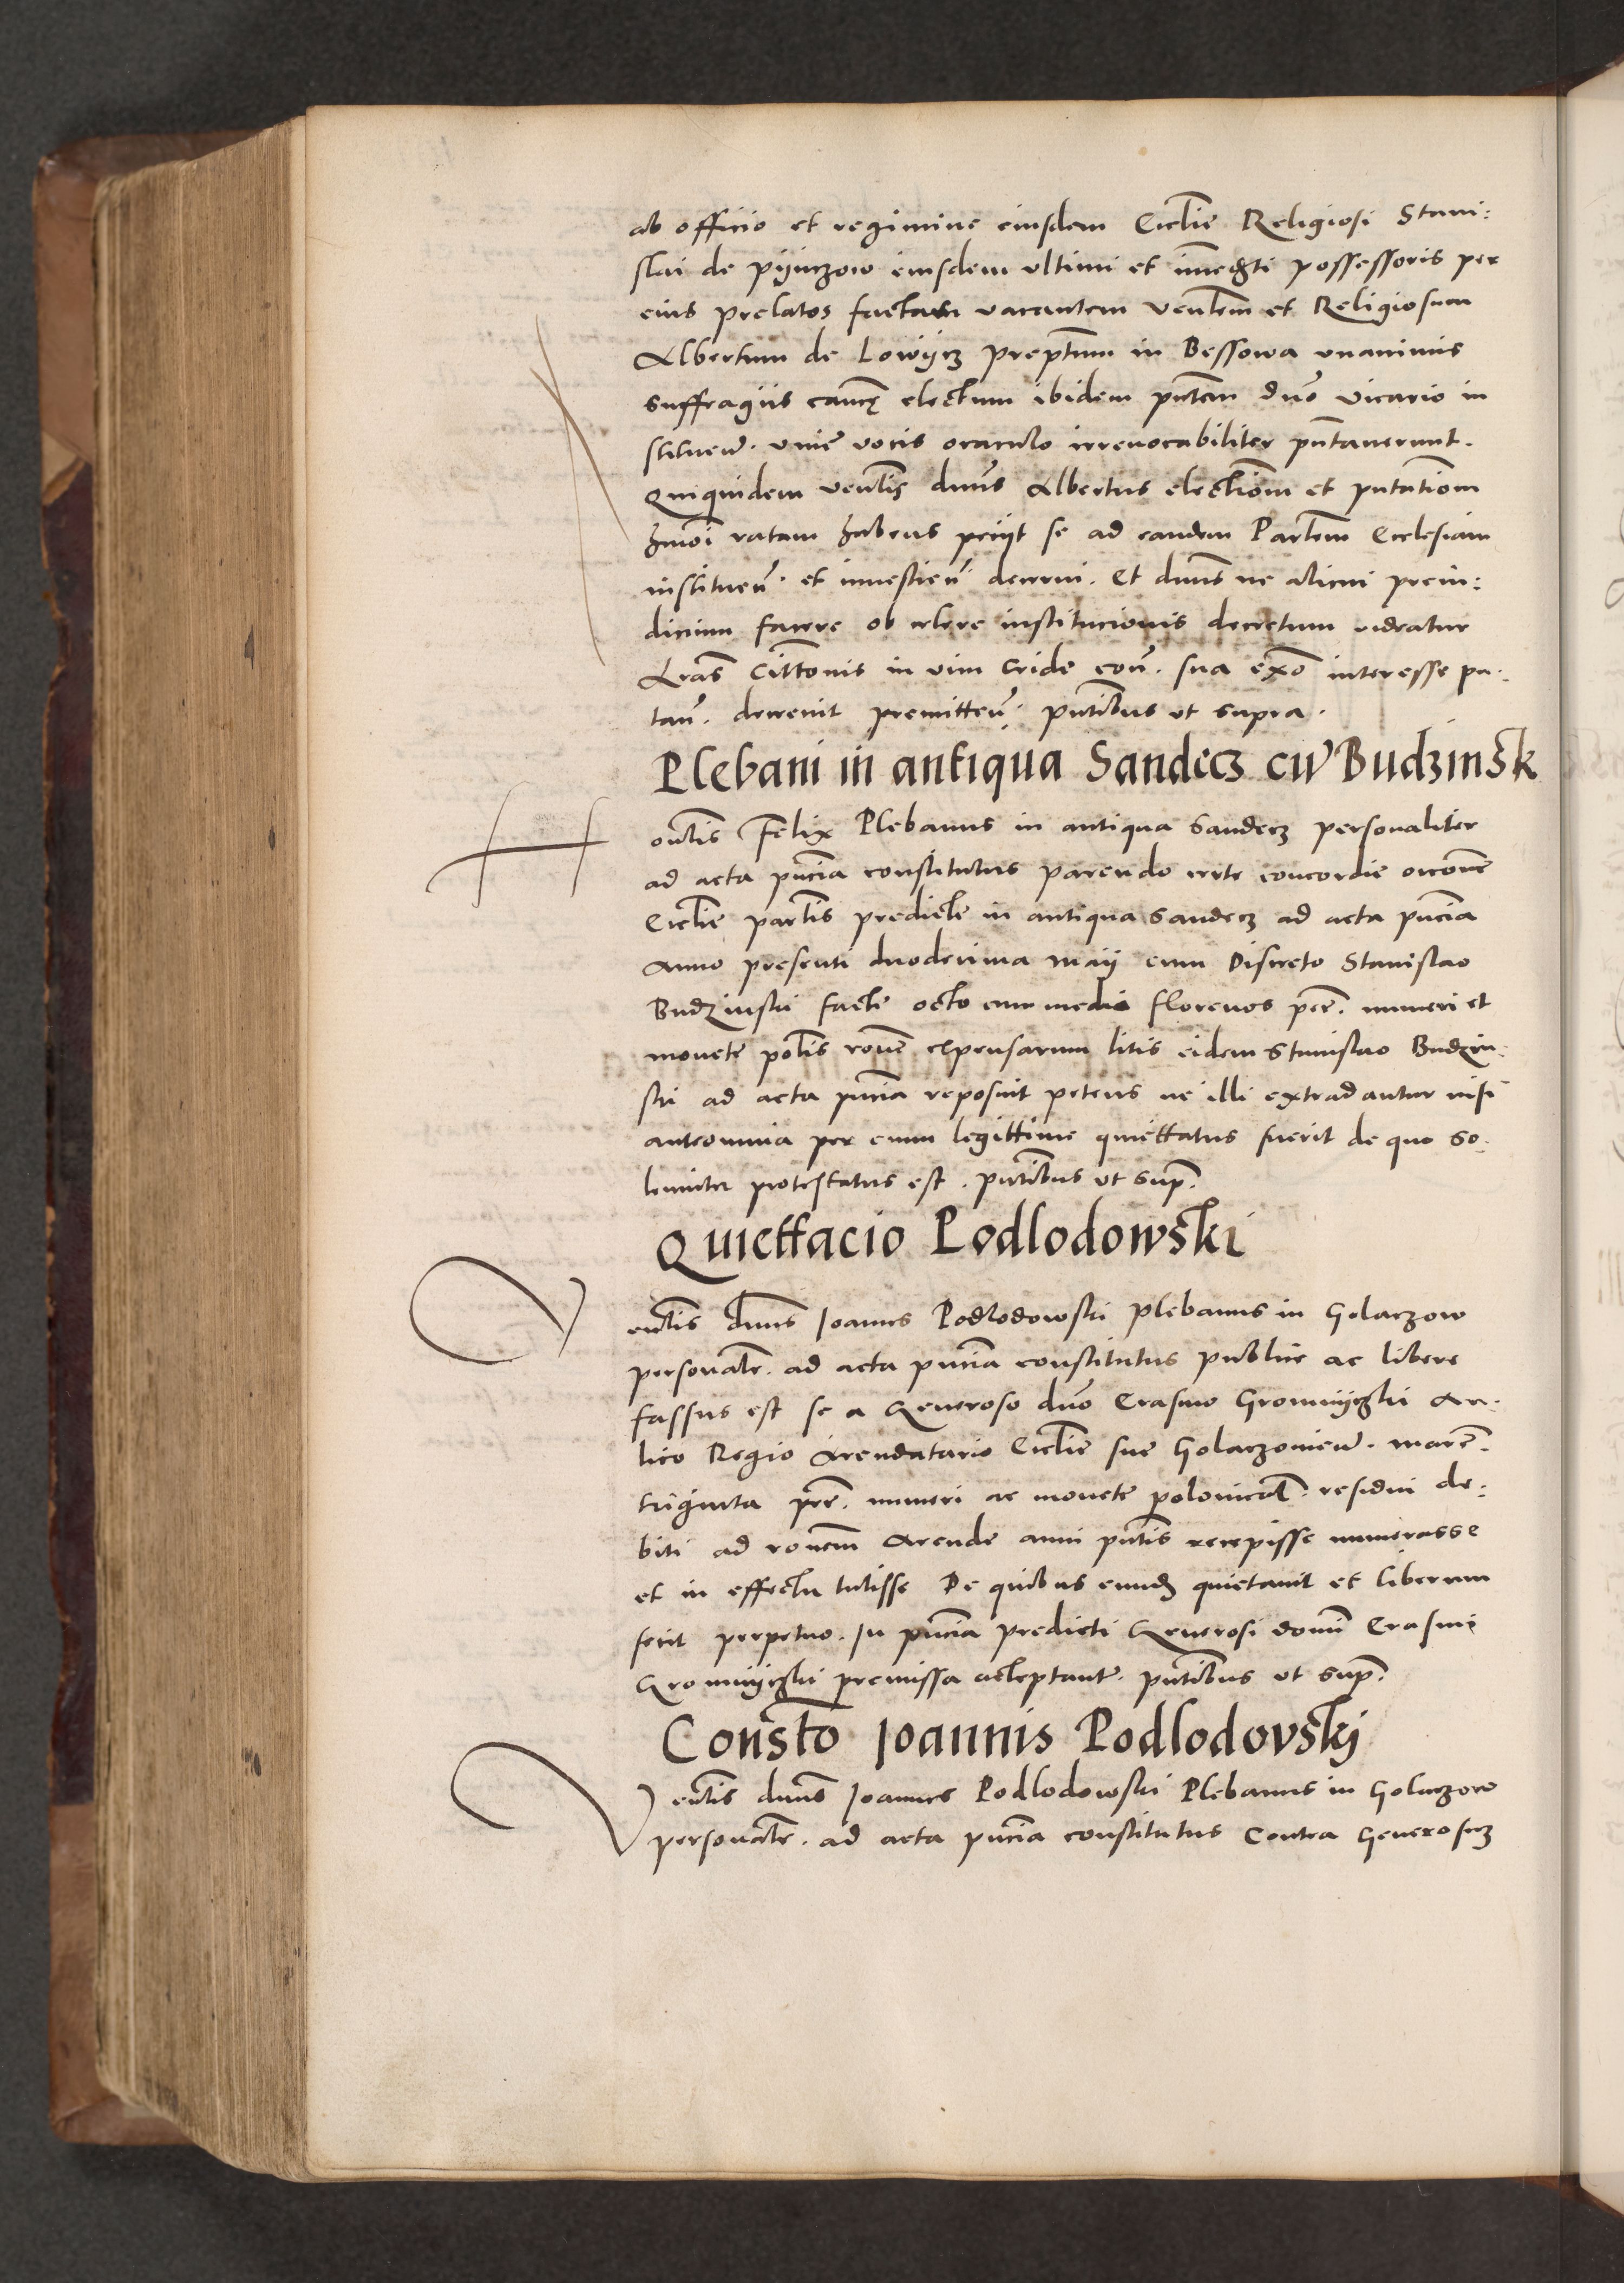 ab officio et regimine eiusdem Ecclie Religiosi Stani:
slai de pijnczow eiusdem ultimi et possessoris per
eius prelatos factam vacantem ventem et Religiosum
Albertum de Lowijcz preptum in Bessowa unanimis
suffragiis electum ibidem putan dno vicario in
stituen. vive vocis oraculo irrevocabiliter puntaverunt.
Quiquidem ventlis dnus Albertus electionm et putationm
hmoi ratam habens petijt se ad eandem Partem Ecclesiam
instituen. et investien. decerni. Et dnus ne alicui prein:
dicium facere ob celere institucionis decretum videatur
Lras Cittonis in vim cride eon. sua exo interesse pu.
tan. decrevit premitten. putibus ut supra.
Plebani in antiqua Sandecz cū Budzinsk
ontlis Felix Plebanus in antiqua Sandecz personaliter
ad acta puncia constitutus parendo certe concordie
Ecclie partis predicte in antiqua Sandecz ad acta puncia
Anno presenti duodecima maij cum Discreto Stanislao
Budzinski facte octo cum medio florenos per. numeri et
monete potlis rone expensarum litis eidem Stanislao Budzin:
ski ad acta puncia reposuit petens ne illi extradantur nisi
anteomnia per eum legittime quiettatus fuerit de quo so.
lenniter protestatus est. putibus ut sup.
Quiettacio Podlodowski
entlis dnus Joannes Podlodowski plebanus in Golaczow
personalr. ad acta puncia constitutus publice ac libere
fassus est se a Generoso dno Erasmo Au.
lico Regio Arendatario Ecclie sue Golaczovien. marc.
triginta per. numeri ac monete polonical. residui de:
biti ad ronem Arende anni putis recepisse numerasse
et in effectu tulisse De quibus eundz quietavit et liberum
fecit perpetuo. In puncia predicti Generosi domi Erasmi
premissa acceptant. putibus ut sup.
Consto Joannis Podlodovskij
Ventlis dnus Joannes Podlodowski Plebanus in Golaczow
personalr. ad acta puncia constitutus Contra Generosuz